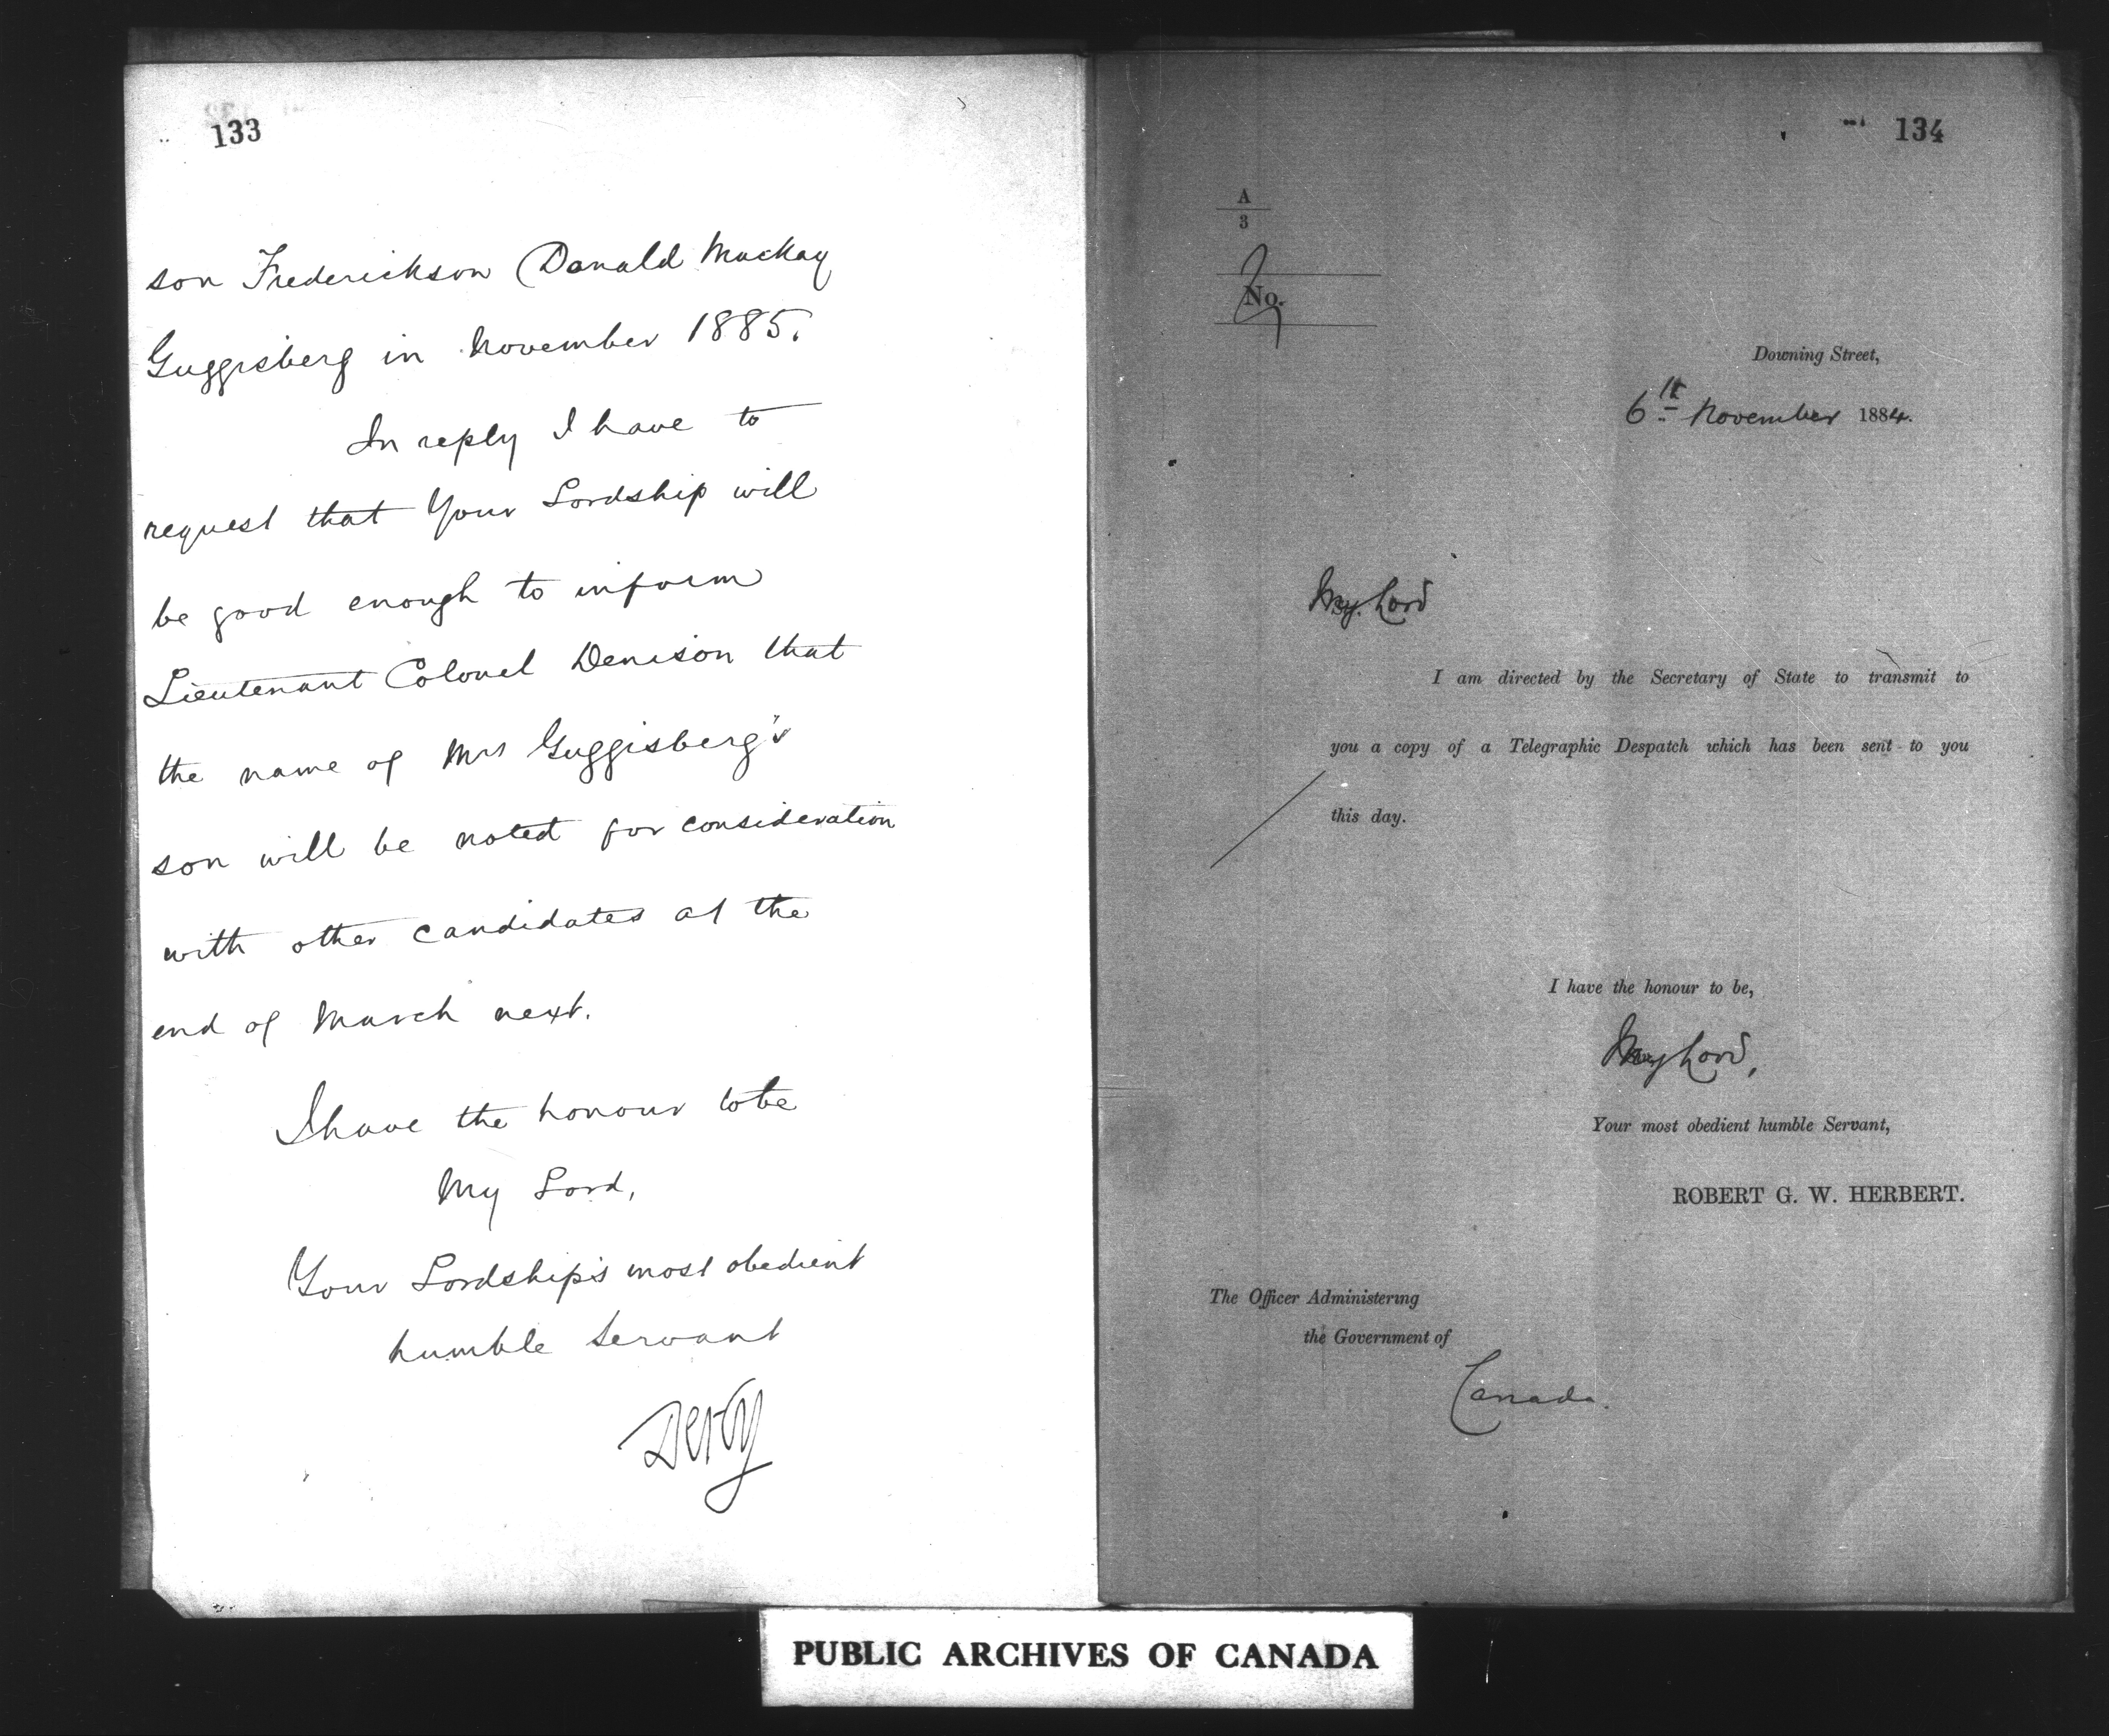 133
son Frederickson Donald Mackay
Guggisberg in November 1885.
In reply I have to
request that Your Lordship will
be good enough to inform
Lieutenant Colonel Denison that
the name of Mrs Guggisberg's
son will be noted for consideration
with other candidates at the
end of March next.
I have the honour to be
My Lord,
Your Lordship's most obedient
humble Servant
Derby
134
A
3
No.
Downing Street,
6th November 1884.
My Lord
I am directed by the Secretary of State to transmit to
you a copy of a Telegraphic Despatch which has been sent to you
this day.
I have the honour to be,
My Lord,
Your most obedient humble Servant,
ROBERT G. W. HERBERT.
The Officer Administering
the Government of
Canada.
PUBLIC ARCHIVES OF CANADA